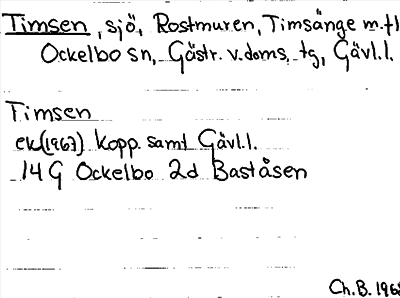 Timsen, sjö, Rostmuren, Timsänge m.fl
Ockelbo sn, Gästr. v.doms. tg, Gävl.l.
Timsen
ek(1967) Kopp. samt Gävl.l.
14 G Ockelbo 2d Baståsen
Ch.B. 1968